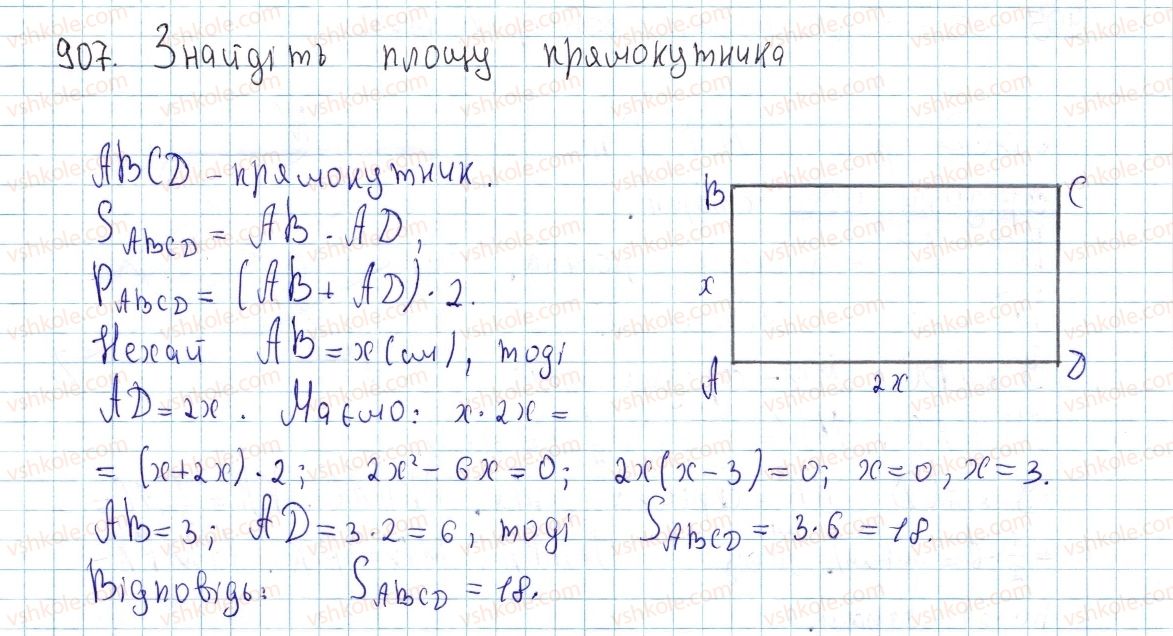 907. Знайдіть площу прямокутника
ABCD - прямокутник.
S ABCD = AB · AD;
P ABCD = (AB + AD) · 2.
Нехай AB = x (см), тоді
AD = 2x. Маємо: x · 2x =
= (x + 2x) · 2; 2x² - 6x = 0; 2x(x - 3) = 0; x = 0, x = 3.
AB = 3; AD = 3 · 2 = 6; тоді S ABCD = 3 · 6 = 18.
Відповідь: S ABCD = 18.
B
C
x
A
2x
D
vshkole.com